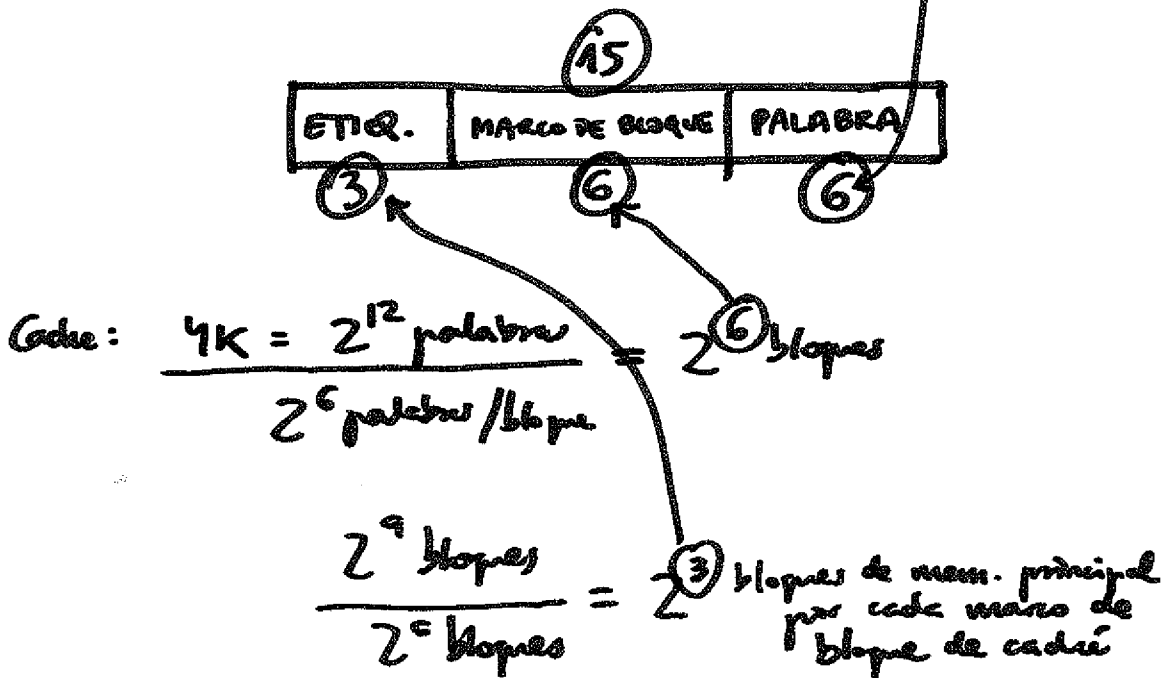 15
ETIQ. MARCO DE BLOQUE PALABRA
3 6 6
Cache: 4K = 2^12 palabras = 2^6 bloques
2^6 palabras/bloque
2^9 bloques = 2^3 bloques de mem. principal
2^6 bloques por cada marco de
bloque de caché